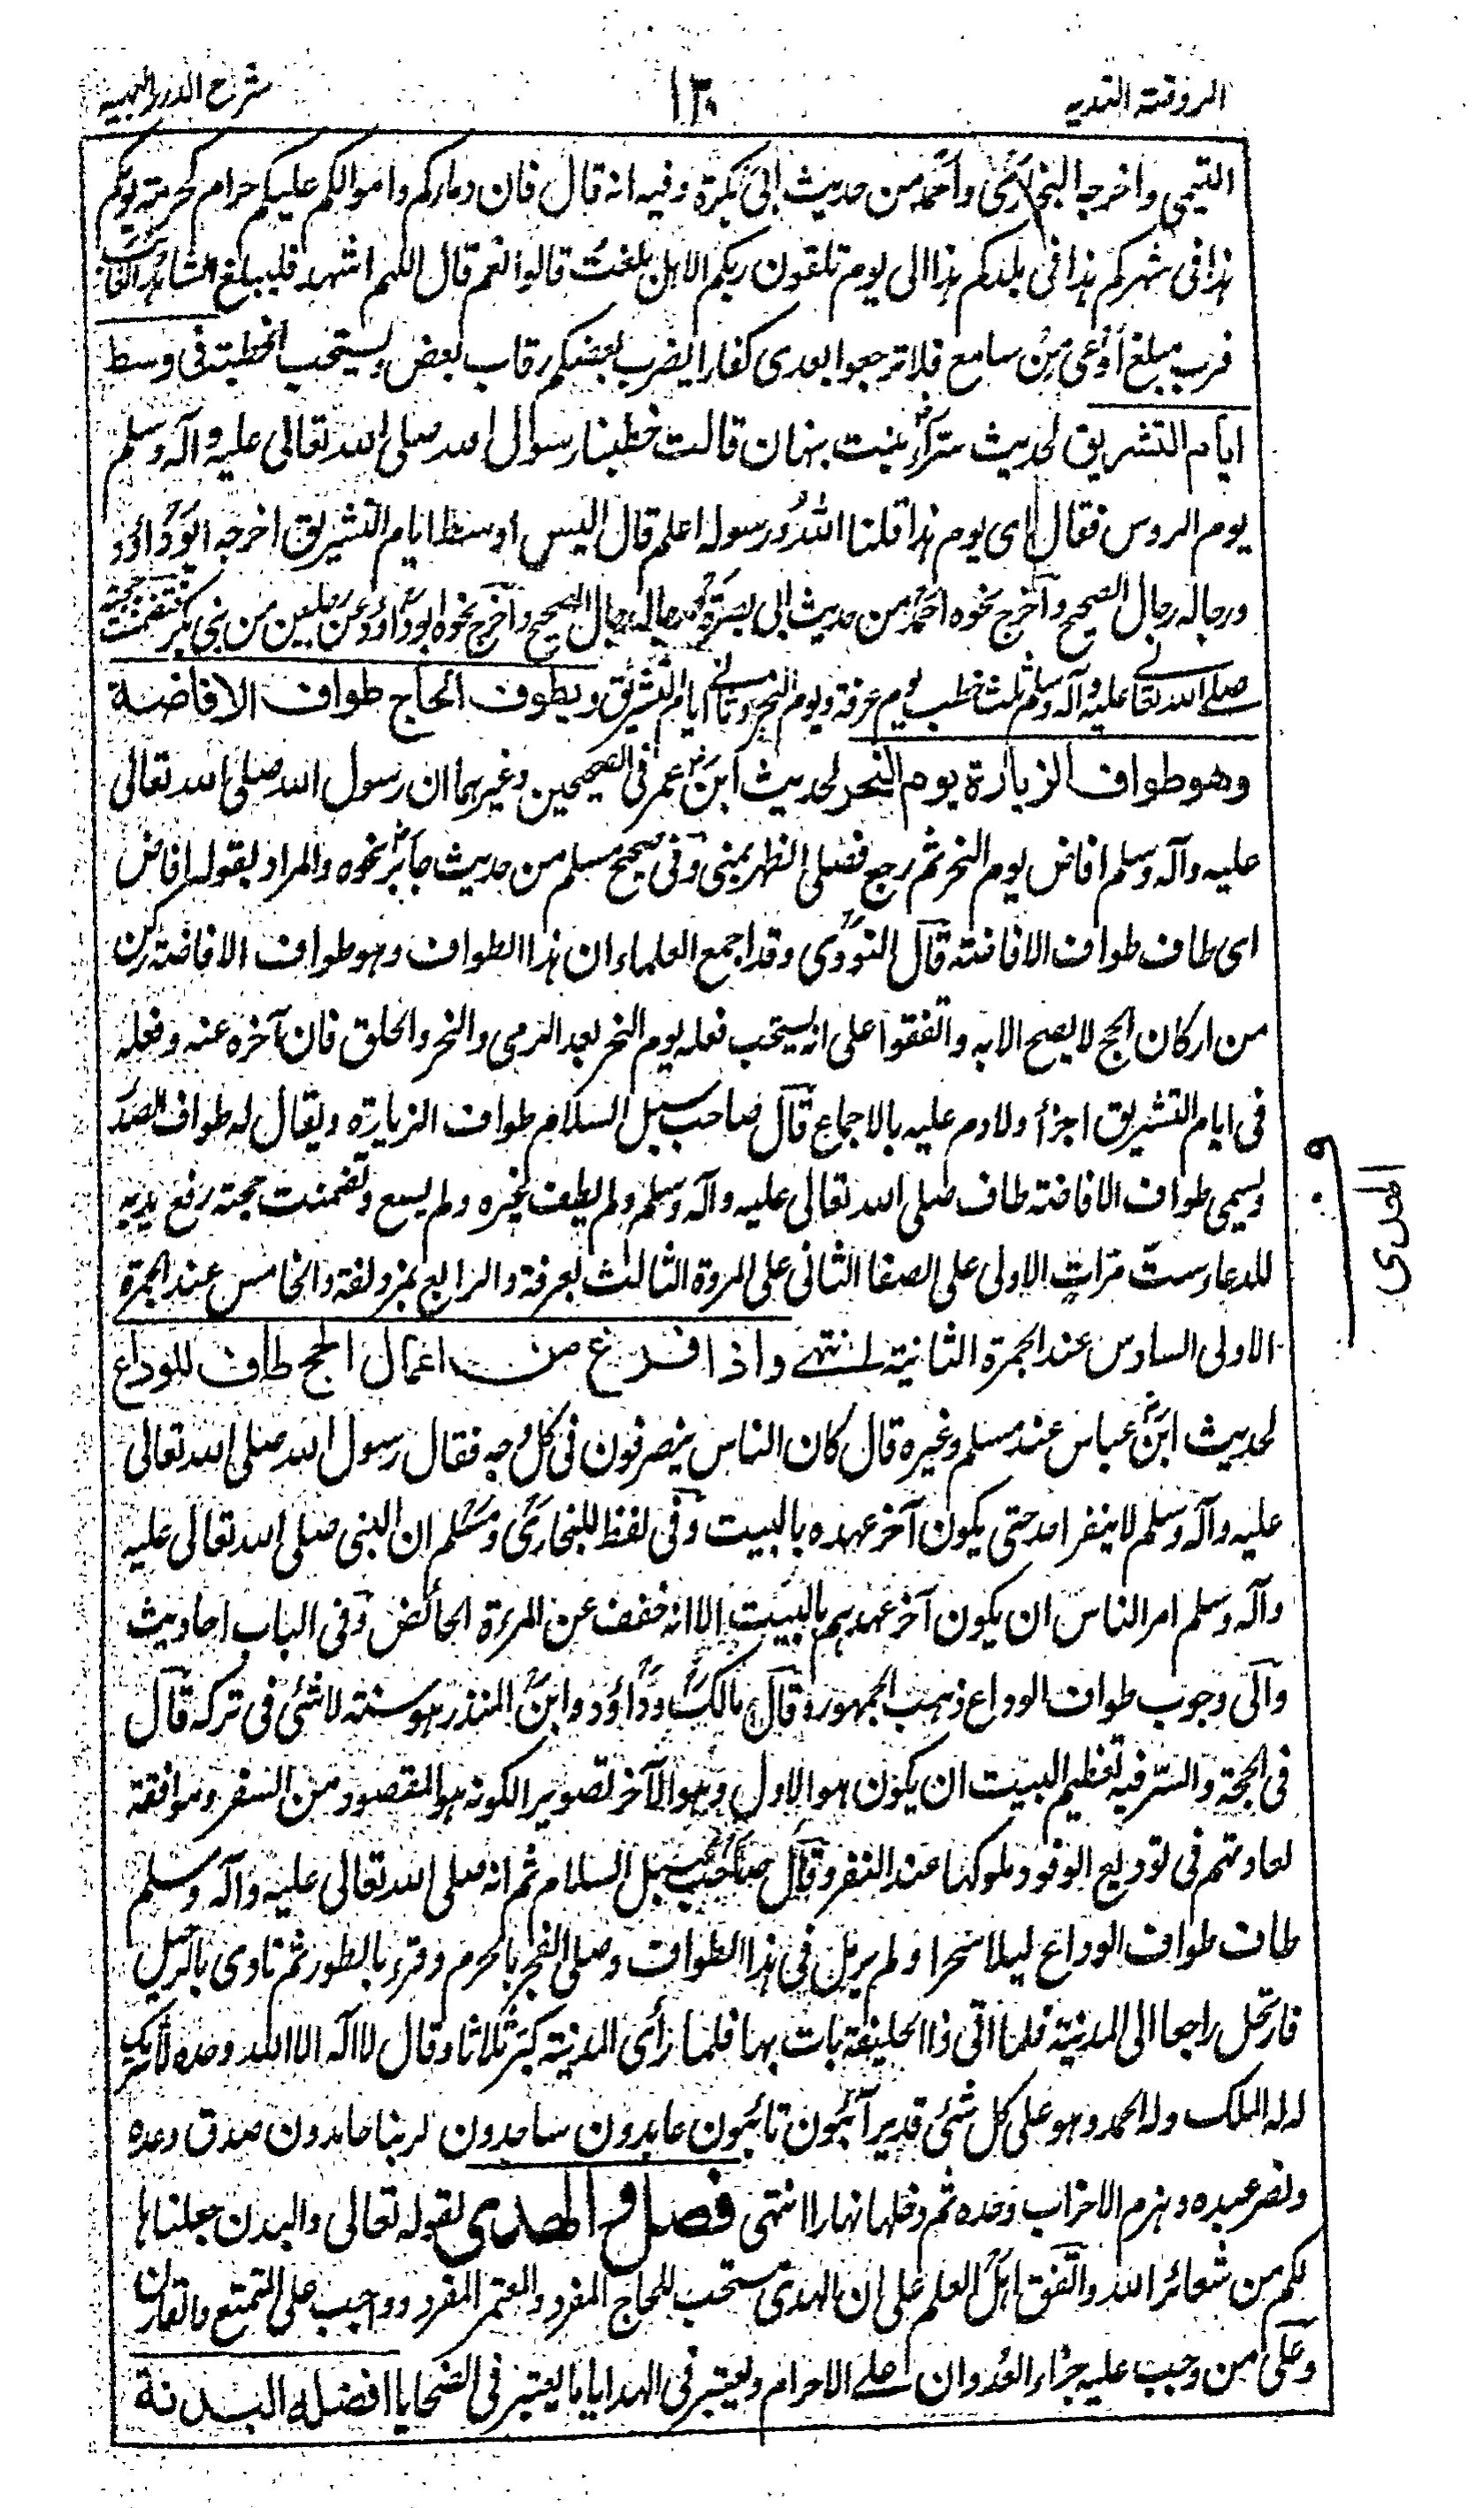 الروضة الندية
١٣٠
شرح الدرر البهية
التيمي واخرجه البخاري واحمد من حديث ابى بكرة وفيه انه قال فان دماءكم واموالكم عليكم حرام كحرمة يومكم
هذا في شهركم هذا في بلدكم هذا الى يوم تلقون ربكم الا هل بلغت قالوا نعم قال اللهم اشهد فليبلغ الشاهد الغائب
فرب مبلغ اوعى من سامع فلا ترجعوا بعدى كفارا يضرب بعضكم رقاب بعض ويستحب الخطبة فى وسط
ايام التشريق لحديث سرّاء بنت نبهان قالت خطبنا رسول الله صلى الله تعالى عليه وآله وسلم
يوم الروس فقال اى يوم هذا قلنا الله ورسوله اعلم قال اليس اوسط ايام التشريق اخرجه ابوداؤد
ورجاله رجال الصحيح وآخرج نحوه احمد من حديث ابى بصرة ورجاله رجال الصحيح وآخرج نحوه ابوداؤد عن رجلين من بنى بكر تضمنت حجته
صلى الله تعالى عليه وآله وسلم ثلث خطب يوم عرفة ويوم النحر وثانى ايام التشريق ويطوف الحاج طواف الافاضة
وهو طواف الزيارة يوم النحر لحديث ابن عمر فى الصحيحين وغيرهما ان رسول الله صلى الله تعالى
عليه وآله وسلم افاض يوم النحر ثم رجع فصلى الظهر بمنى وفى صحيح مسلم من حديث جابر نحوه والمراد بقوله افاض
اى طاف طواف الافاضة قال النووى وقد اجمع العلماء ان هذا الطواف وهو طواف الافاضة ركن
من اركان الحج لا يصح الا به واتفقوا على انه يستحب فعله يوم النحر بعد الرمى والنحر والحلق فان آخره عنه وفعله
فى ايام التشريق اجزأ ولا دم عليه بالاجماع قال صاحب سبل السلام طواف الزيارة ويقال له طواف الصدر
ويسمى طواف الافاضة طاف صلى الله تعالى عليه وآله وسلم ولم يطف غيره ولم يسع وتضمنت حجته رفع يديه
للدعاء ست مرات الاولى على الصفا الثانى على المروة الثالث بعرفة والرابع بمزدلفة والخامس عند الجمرة
الاولى السادس عند الجمرة الثانية انتهى واذا فرغ من اعمال الحج طاف للوداع
لحديث ابن عباس عند مسلم وغيره قال كان الناس ينصرفون فى كل وجه فقال رسول الله صلى الله تعالى
عليه وآله وسلم لا ينفر احد حتى يكون آخر عهده بالبيت وفى لفظ للبخارى ومسلم ان النبى صلى الله تعالى عليه
وآله وسلم امر الناس ان يكون آخر عهدهم بالبيت الا انه خفف عن المرءة الحائض وفى الباب احاديث
وآلى وجوب طواف الوداع ذهب الجمهور وقال مالك وداؤد وابن المنذر هو سنة لا شئ فى تركه قال
فى الحجة والسر فيه تعظيم البيت ان يكون هو الاول وهو الآخر تصويرا لكونه هو المقصود من السفر وموافقة
لعادتهم فى توديع الوفود ملوكها عند النفر وقال صاحب سبل السلام ثم انه صلى الله تعالى عليه وآله وسلم
طاف طواف الوداع ليلا سحرا ولم يرمل فى هذا الطواف وصلى الفجر بالحرم وقرء بالطور ثم نادى بالرحيل
فارتحل راجعا الى المدينة فلما اتى ذا الحليفة بات بها فلما رأى المدينة كبر ثلاثا وقال لا آله الا الله وحده لا شريك
له له الملك وله الحمد وهو على كل شئ قدير آئبون تائبون عابدون ساجدون لربنا حامدون صدق وعده
ونصر عبده وهزم الاحزاب وحده ثم دخلها نهارا انتهى فصل و الهدى لقوله تعالى والبدن جعلناها
لكم من شعائر الله واتفق اهل العلم على ان الهدى مستحب للحاج المفرد والمعتمر المفرد وواجب على المتمتع والقارن
وعلى من وجب عليه جزاء العدوان على الاحرام ويعتبر فى الهدايا ما يعتبر فى الضحايا افضله البدنة
و
الهدى